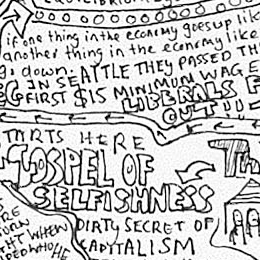 if one thing in the economy goes up lik
another thing in the economy like
go down. SEATTLE THEY PASSED TH
IN SEATTLE
FIRST $15 MINIMUM WAGE
LIBERALS F
OUT!!
TARTS HERE
GOSPEL OF
SELFISHNESS
Th
DIRTY SECRET OF
CAPITALISM
WHEN
WHO
HE